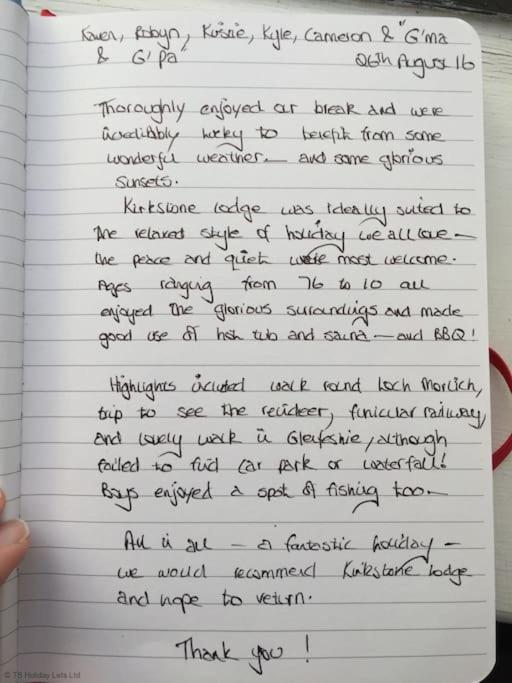 Karen, Robyn, Kirstie, Kyle, Cameron & "G'ma
& G'pa" 26th August 16
Thoroughly enjoyed our break and were
incredibly lucky to benefit from some
wonderful weather — and some glorious
sunsets.
Kirkstone lodge was ideally suited to
the relaxed style of holiday we all love —
the peace and quiet were most welcome.
Ages ranging from 76 to 10 all
enjoyed the glorious surroundings and made
good use of hot tub and sauna — and BBQ!
Highlights included walk round Loch Morlich,
trip to see the reindeer, funicular railway,
and lovely walk in Glenfeshie, although
failed to find car park or waterfall!
Boys enjoyed a spot of fishing too.
All in all — a fantastic holiday —
we would recommend Kirkstone lodge
and hope to return.
Thank you!
© TS Holiday Lets Ltd